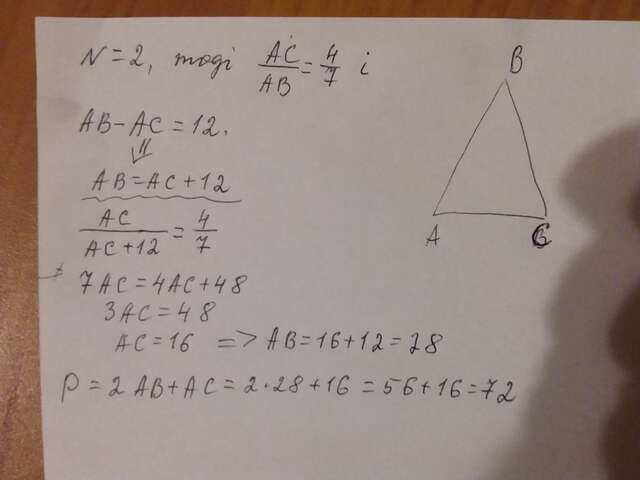 N=2, тоді AC/AB=4/7 і
AB-AC=12.
⇓
AB=AC+12
AC/AC+12=4/7
7AC=4AC+48
3AC=48
AC=16 => AB=16+12=28
P=2AB+AC=2·28+16=56+16=72
B
A
C